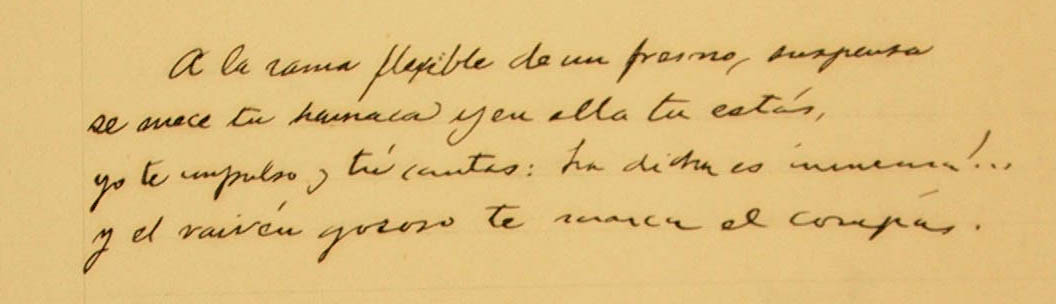 A la rama flexible de un fresno, suspensa
se mece tu hamaca y en ella tu estás,
yo te impulso y tú cantas: la dicha es inmensa!...
y el vaivén gozoso te marca el compás.